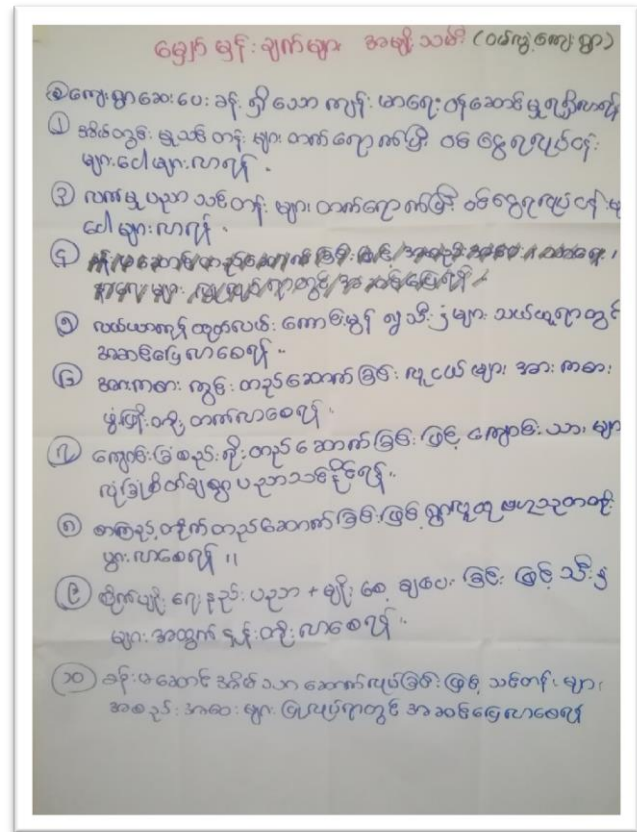 မျှော်မှန်းချက်များ အမျိုးသမီး (ဝမ်လွဲကျေးရွာ)
၁ ကျေးရွာဆေးပေးခန်းရှိသော ကျန်းမာရေးဝန်ဆောင်မှုရရှိလာရန်
၂ အိမ်တွင်းမှုသင်တန်းများတက်ရောက်ပြီး ဝင်ငွေရလုပ်ငန်း
များပေါများလာရန်။
၃ လက်မှုပညာသင်တန်းများတက်ရောက်ပြီး ဝင်ငွေရလုပ်ငန်းမှု
ပေါများလာရန်။
၄
၅ လယ်ယာကုန်ထုတ်လမ်းကောင်းမွန်၍ သီးနှံများသယ်ယူရာတွင်
အဆင်ပြေလာစေရန်။
၆ အားကစားကွင်းတည်ဆောက်ခြင်း လူငယ်များ အားကစား
ဖွံ့ဖြိုးတိုးတက်လာစေရန်။
၇ ကျောင်းခြံစည်းရိုးတည်ဆောက်ခြင်းဖြင့် ကျောင်းသားများ
လုံခြုံစိတ်ချစွာပညာသင်နိုင်ရန်။
၈ စာကြည့်တိုက်တည်ဆောက်ခြင်းဖြင့် ရွာလူထုဗဟုသုတတိုး
ပွားလာစေရန်။
၉ စိုက်ပျိုးရေးနည်းပညာ + မျိုးစေ့ချပေးခြင်းဖြင့် သီးနှံ
များအထွက်နှုန်းတိုးလာစေရန်။
၁၀ ခန်းမဆောင်အိမ်သာဆောက်လုပ်ခြင်းဖြင့် သင်တန်းများ
အစည်းအဝေးများပြုလုပ်ရာတွင် အဆင်ပြေလာစေရန်